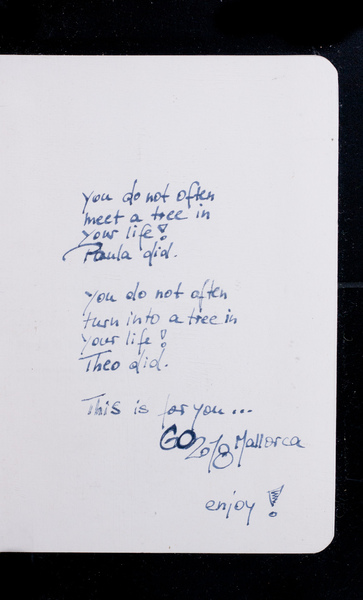 you do not often
meet a tree in
your life!
Paula did.
you do not often
turn into a tree in
your life!
Theo did.
This is for you...
GO 2018 Mallorca
enjoy!